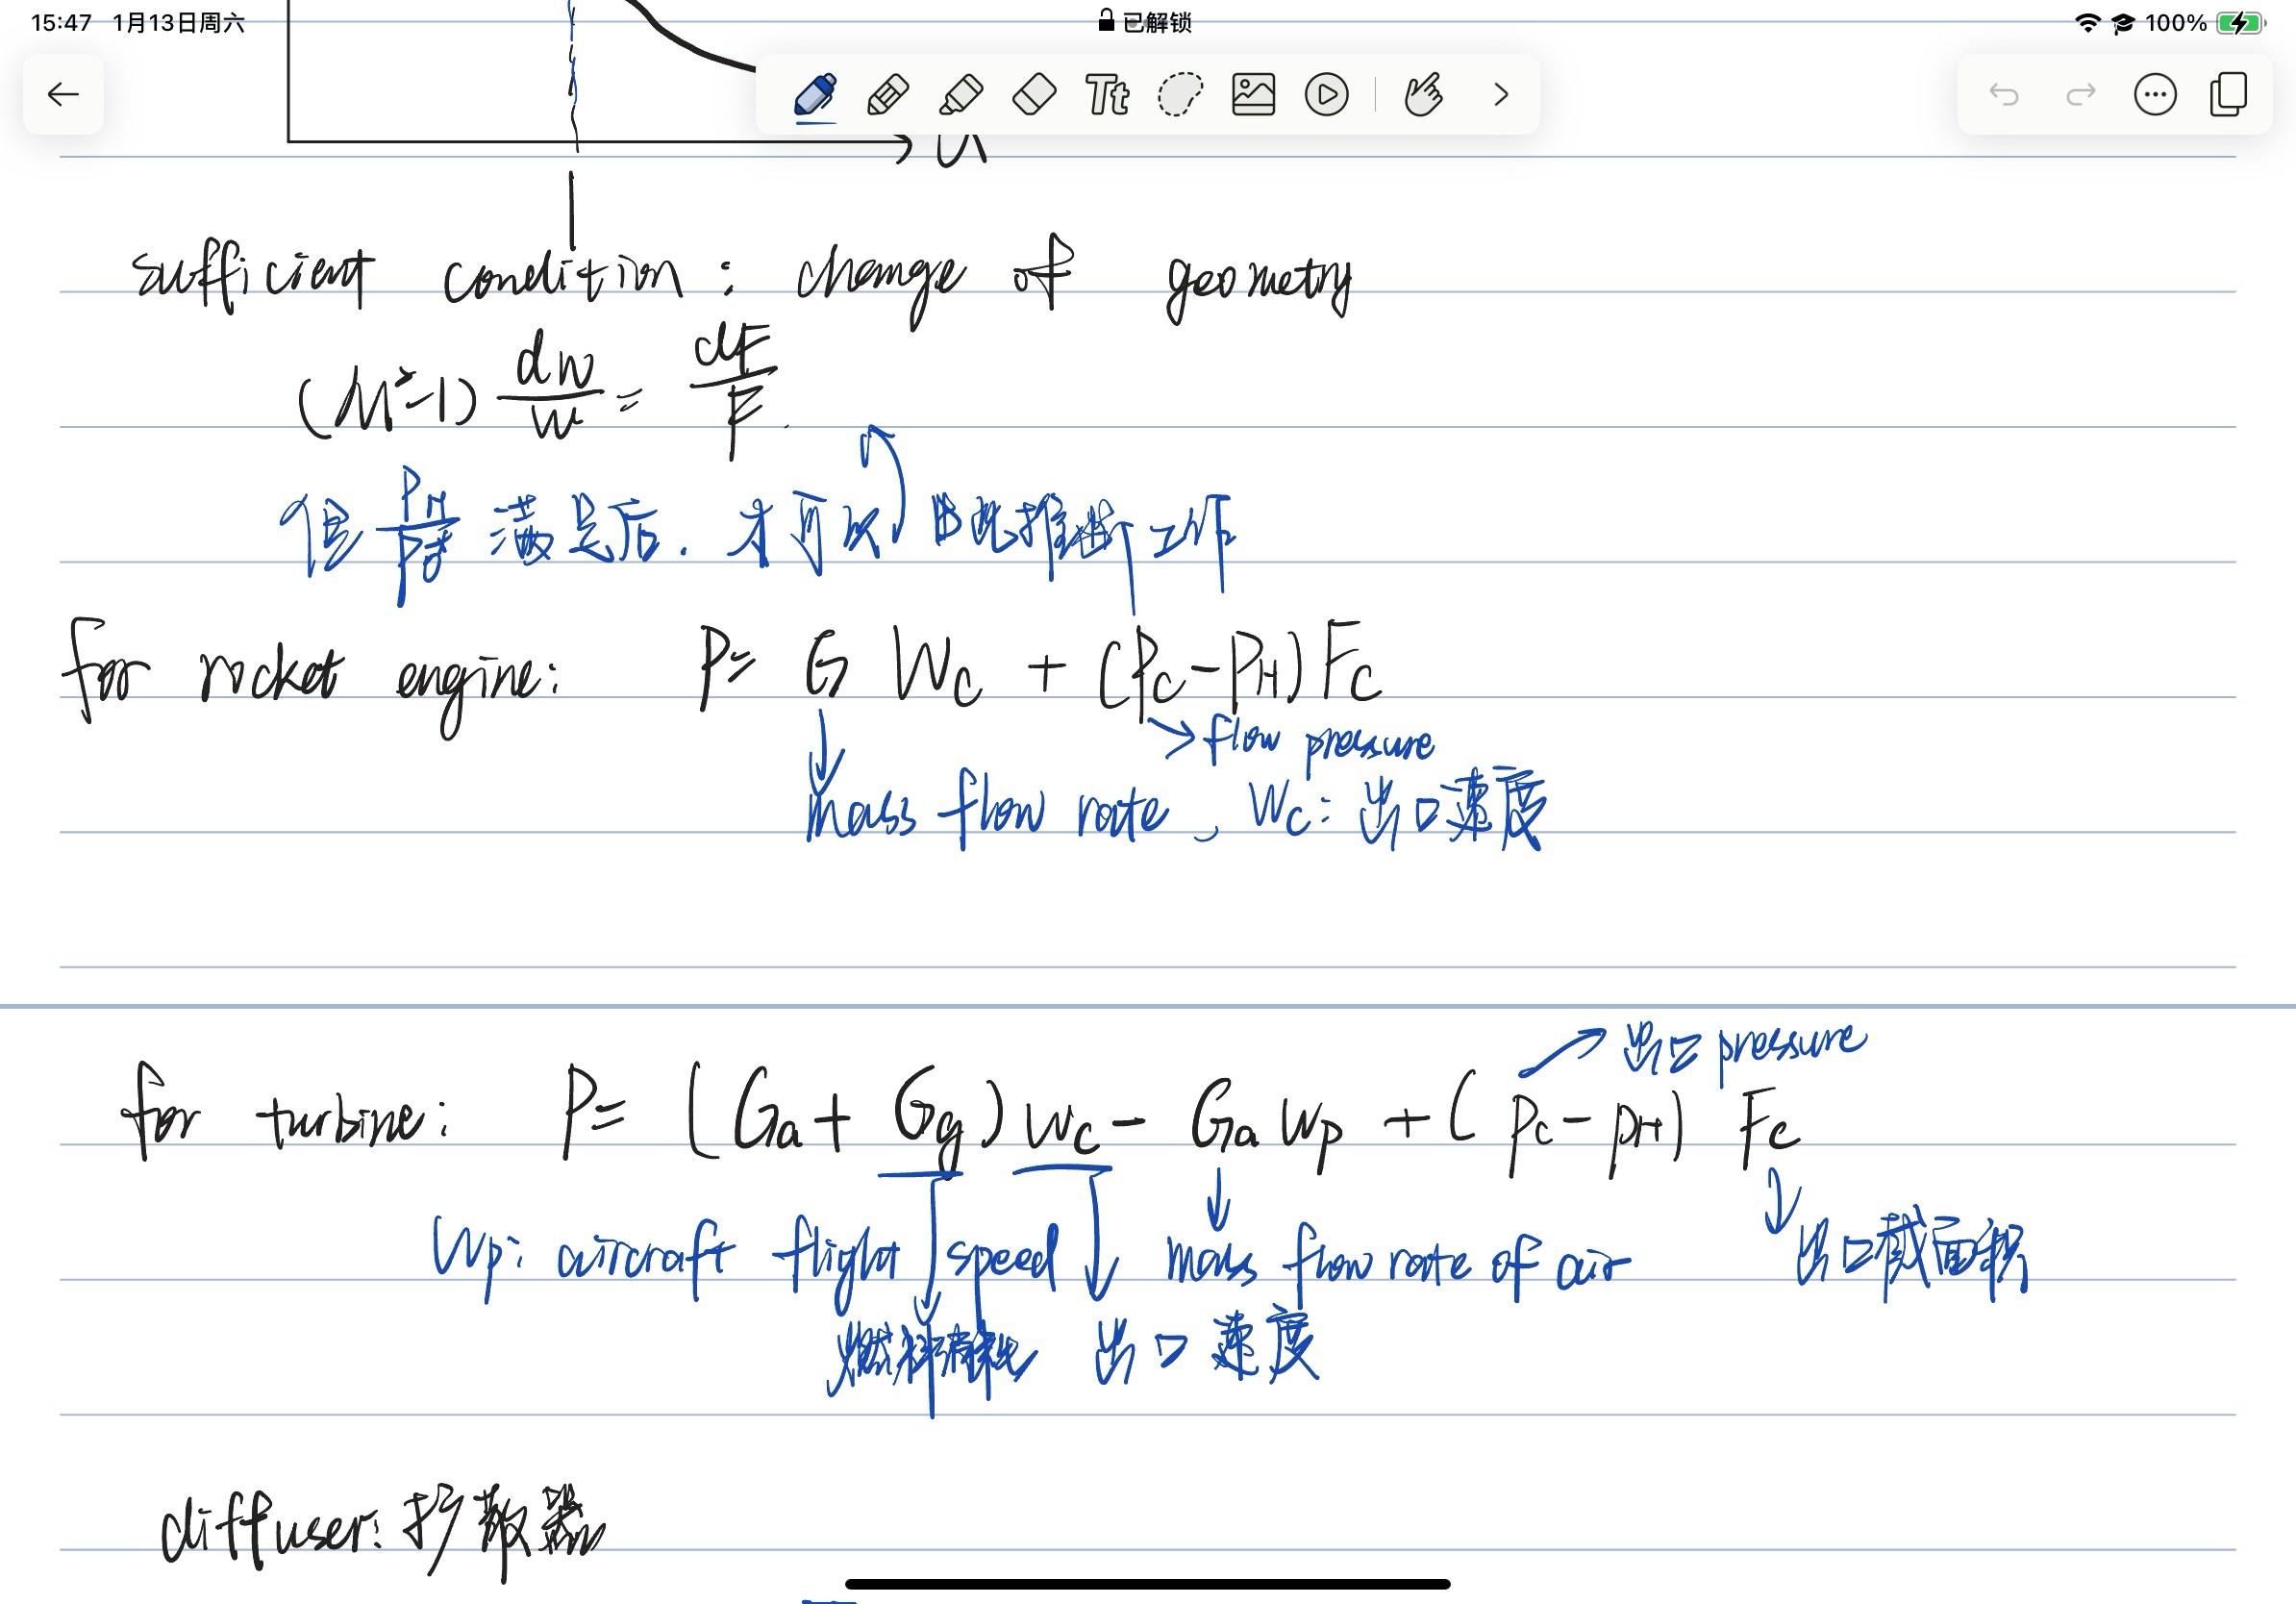 15:47 1月13日周六 已解锁 100%
Tt
sufficient condition: change of geometry
(M²-1) dw/w = dF/F.
但 PH/P0 满足后. 才可以 由此推断 工作
for rocket engine: P= G Wc + (Pc-PH) Fc
flow pressure
mass flow rate, Wc: 出口速度
出口 pressure
for turbine: P= (Ga+ Gg) Wc- Ga Wp + (Pc-PH) Fc
Wp: aircraft flight speed mass flow rate of air 出口截面积
燃料消耗 出口速度
diffuser: 扩散器